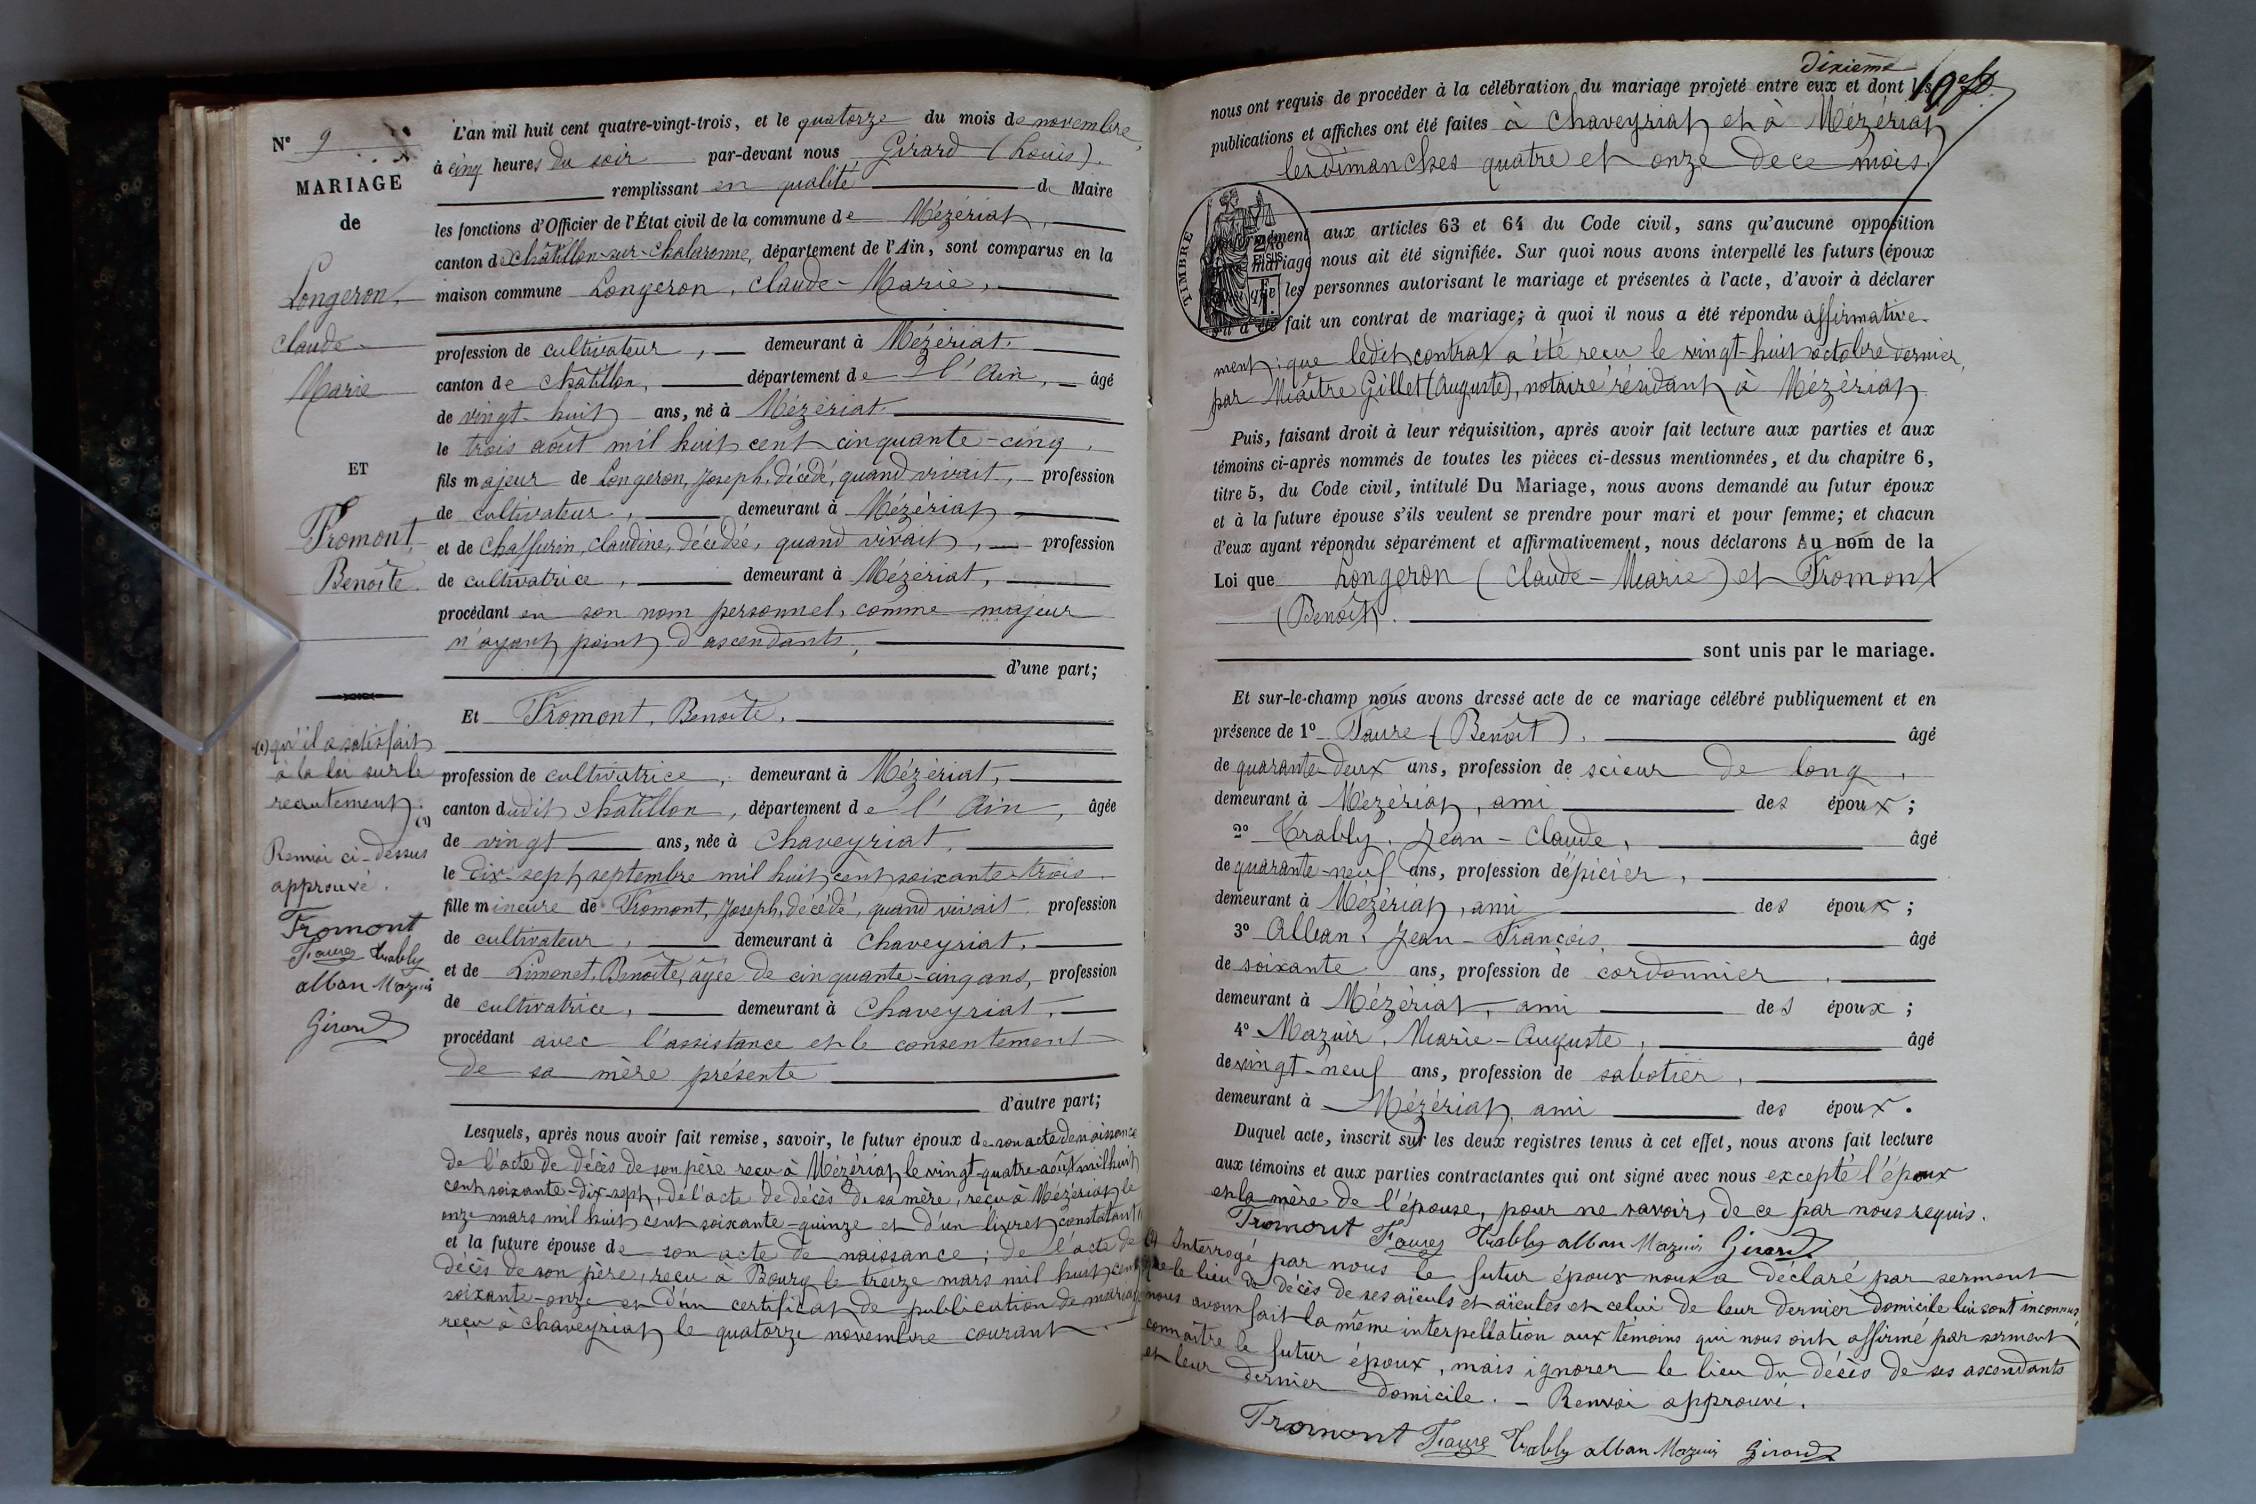 N° 9
MARIAGE
de
Longeron,
Claude-
Marie
ET
Fromont,
Benoîte.
(1) qu'il a satisfait
à la loi sur le
recrutement.
(1)
Renvoi ci-dessus
approuvé.
Fromont
Faure Trably
alban Mazuir
Girard
L'an mil huit cent quatre-vingt-trois, et le quatorze du mois de novembre,
à cinq heures du soir par-devant nous Girard (Louis).
remplissant en qualité de Maire
les fonctions d'Officier de l'État civil de la commune de Mézériat,
canton de Châtillon-sur-Chalaronne, département de l'Ain, sont comparus en la
maison commune Longeron, Claude-Marie,
profession de cultivateur, demeurant à Mézériat.
canton de Châtillon, département de l'Ain, âgé
de vingt-huit ans, né à Mézériat.
le trois août mil huit cent cinquante-cinq.
fils majeur de Longeron, Joseph, décédé, quand vivait, profession
de cultivateur, demeurant à Mézériat
et de Chaffurin, Claudine, décédée, quand vivait, profession
de cultivatrice, demeurant à Mézériat,
procédant en son nom personnel, comme majeur
n'ayant point d'ascendants,
d'une part;
Et Fromont, Benoîte.
profession de cultivatrice, demeurant à Mézériat,
canton dudit Châtillon, département de l'Ain, âgée
de vingt ans, née à Chaveyriat,
le dix-sept septembre mil huit cent soixante-trois
fille mineure de Fromont, Joseph, décédé, quand vivait profession
de cultivateur, demeurant à Chaveyriat,
et de Limonet, Benoîte, âgée de cinquante-cinq ans, profession
de cultivatrice, demeurant à Chaveyriat,
procédant avec l'assistance et le consentement
de sa mère présente
d'autre part;
Lesquels, après nous avoir fait remise, savoir, le futur époux de son acte de naissance
de l'acte de décès de son père reçu à Mézériat le vingt-quatre août mil huit
cent soixante-dix-sept, de l'acte de décès de sa mère, reçu à Mézériat le
onze mars mil huit cent soixante-quinze et d'un livret constatant (1)
et la future épouse de son acte de naissance; de l'acte de
décès de son père, reçu à Bourg le treize mars mil huit cent
soixante-onze et d'un certificat de publication de mariage
reçu à Chaveyriat le quatorze novembre courant.
Dixième
10e f°
nous ont requis de procéder à la célébration du mariage projeté entre eux et dont les
publications et affiches ont été faites à Chaveyriat et à Mézériat
les dimanches quatre et onze de ce mois.
TIMBRE
conformément aux articles 63 et 64 du Code civil, sans qu'aucune opposition
mariage nous ait été signifiée. Sur quoi nous avons interpellé les futurs époux
que les personnes autorisant le mariage et présentes à l'acte, d'avoir à déclarer
s'il a été fait un contrat de mariage; à quoi il nous a été répondu affirmative-
ment; que ledit contrat a été reçu le vingt-huit octobre dernier,
par Maître Gillet (Auguste), notaire résidant à Mézériat
Puis, faisant droit à leur réquisition, après avoir fait lecture aux parties et aux
témoins ci-après nommés de toutes les pièces ci-dessus mentionnées, et du chapitre 6,
titre 5, du Code civil, intitulé Du Mariage, nous avons demandé au futur époux
et à la future épouse s'ils veulent se prendre pour mari et pour femme; et chacun
d'eux ayant répondu séparément et affirmativement, nous déclarons Au nom de la
Loi que Longeron (Claude-Marie) et Fromont
(Benoît).
sont unis par le mariage.
Et sur-le-champ nous avons dressé acte de ce mariage célébré publiquement et en
présence de 1° Faure (Benoît). âgé
de quarante-deux ans, profession de scieur de long,
demeurant à Mézériat, ami des époux;
2° Trably, Jean-Claude, âgé
de quarante-neuf ans, profession d'épicier,
demeurant à Mézériat, ami des époux;
3° Alban, Jean-François, âgé
de soixante ans, profession de cordonnier,
demeurant à Mézériat, ami des époux;
4° Mazuir, Marie-Auguste, âgé
de vingt-neuf ans, profession de sabotier,
demeurant à Mézériat, ami des époux.
Duquel acte, inscrit sur les deux registres tenus à cet effet, nous avons fait lecture
aux témoins et aux parties contractantes qui ont signé avec nous excepté l'époux
et la mère de l'épouse, pour ne savoir, de ce par nous requis.
Fromont Faure Trably alban Mazuir Girard
Interrogé par nous le futur époux nous a déclaré par serment
que le lieu du décès de ses aïeuls et aïeules et celui de leur dernier domicile lui sont inconnus,
nous avons fait la même interpellation aux témoins qui nous ont affirmé par serment
connaître le futur époux, mais ignorer le lieu du décès de ses ascendants
et leur dernier domicile. - Renvoi approuvé.
Fromont Faure Trably alban Mazuir Girard